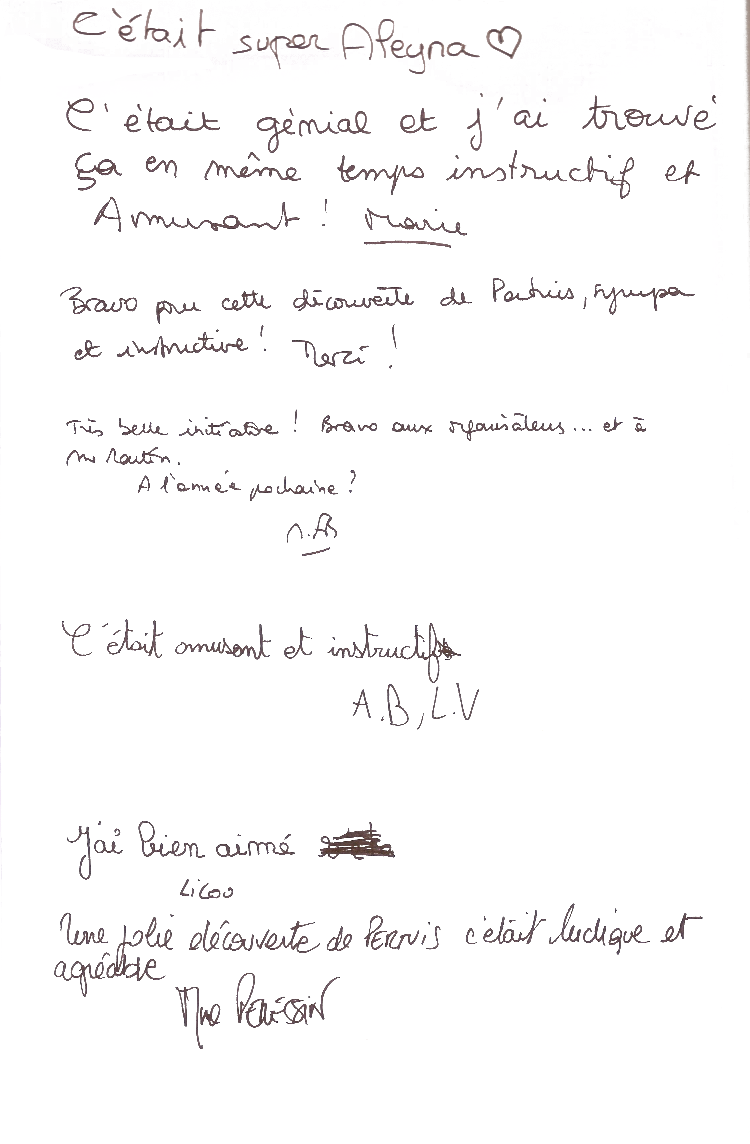 C'était super Aleyna ♡
C'était génial et j'ai trouvé
ça en même temps instructif et
Amusant ! Marie
Bravo pour cette découverte de Pertuis, sympa
et instructive ! Merci !
Très belle initiative ! Bravo aux organisateurs... et à
A l'année prochaine ?
C'était amusant et instructif
A.B, L.V
J'ai bien aimé
Lilou
Une jolie découverte de PERTUIS c'était ludique et
agréable
Mme